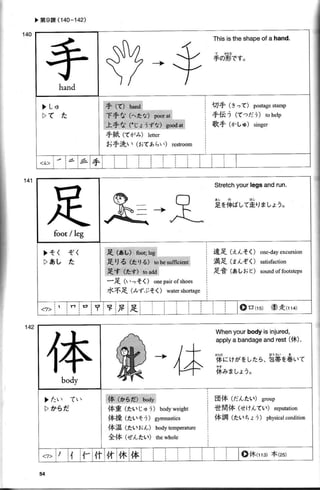 ▶第9課 (140-142)
140
手
hand
This is the shape of a hand.
て かたち
手の形です。
▶しゅ
▷て た
手 (て) hand
下手な (*へたな) poor at
上手な (*じょうずな) good at
手紙 (てがみ) letter
お手洗い (おてあらい) restroom
切手 (きって) postage stamp
手伝う (てつだう) to help
歌手 (かしゅ) singer
<4>
手
141
足
foot / leg
Stretch your legs and run.
あし の はし
足を伸ばして走りましょう。
▶そく ぞく
▷あし た
足 (あし) foot; leg
足りる (たりる) to be sufficient
足す (たす) to add
一足 (いっそく) one pair of shoes
水不足 (みずぶそく) water shortage
遠足 (えんそく) one-day excursion
満足 (まんぞく) satisfaction
足音 (あしおと) sound of footsteps
<7>
足
口(15) 走(114)
142
体
body
When your body is injured, apply a bandage and rest (休).
からだ ほうたい ま
体にけがをしたら、包帯を巻いて
やす
休みましょう。
▶たい てい
▷からだ
体 (からだ) body
体重 (たいじゅう) body weight
体操 (たいそう) gymnastics
体温 (たいおん) body temperature
全体 (ぜんたい) the whole
団体 (だんたい) group
世間体 (せけんてい) reputation
体調 (たいちょう) physical condition
<7>
体
休(113) 本(25)
54